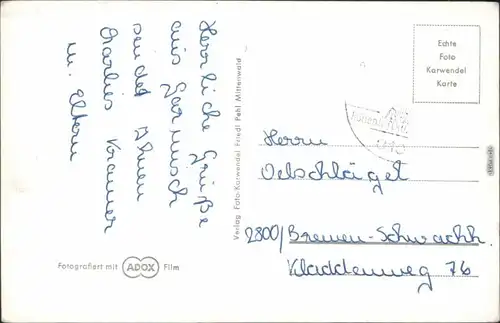 Herrliche Grüße
aus Garmisch
sendet Ihnen
Marlies Krammer
u. Eltern
Fotografiert mit ADOX Film
Verlag Foto-Karwendel Friedl Pehl Mittenwald
Echte
Foto
Karwendel
Karte
Herrn
Oelschläger
2800/Bremen-Schwachh.
Kladdenweg 76